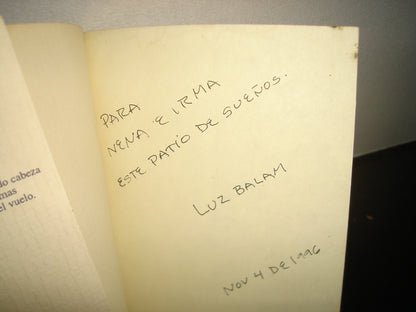 do cabeza
mas
el vuelo.
PARA
NENA E IRMA
ESTE PATIO DE SUEÑOS.
LUZ BALAM
NOV 4 DE 1996